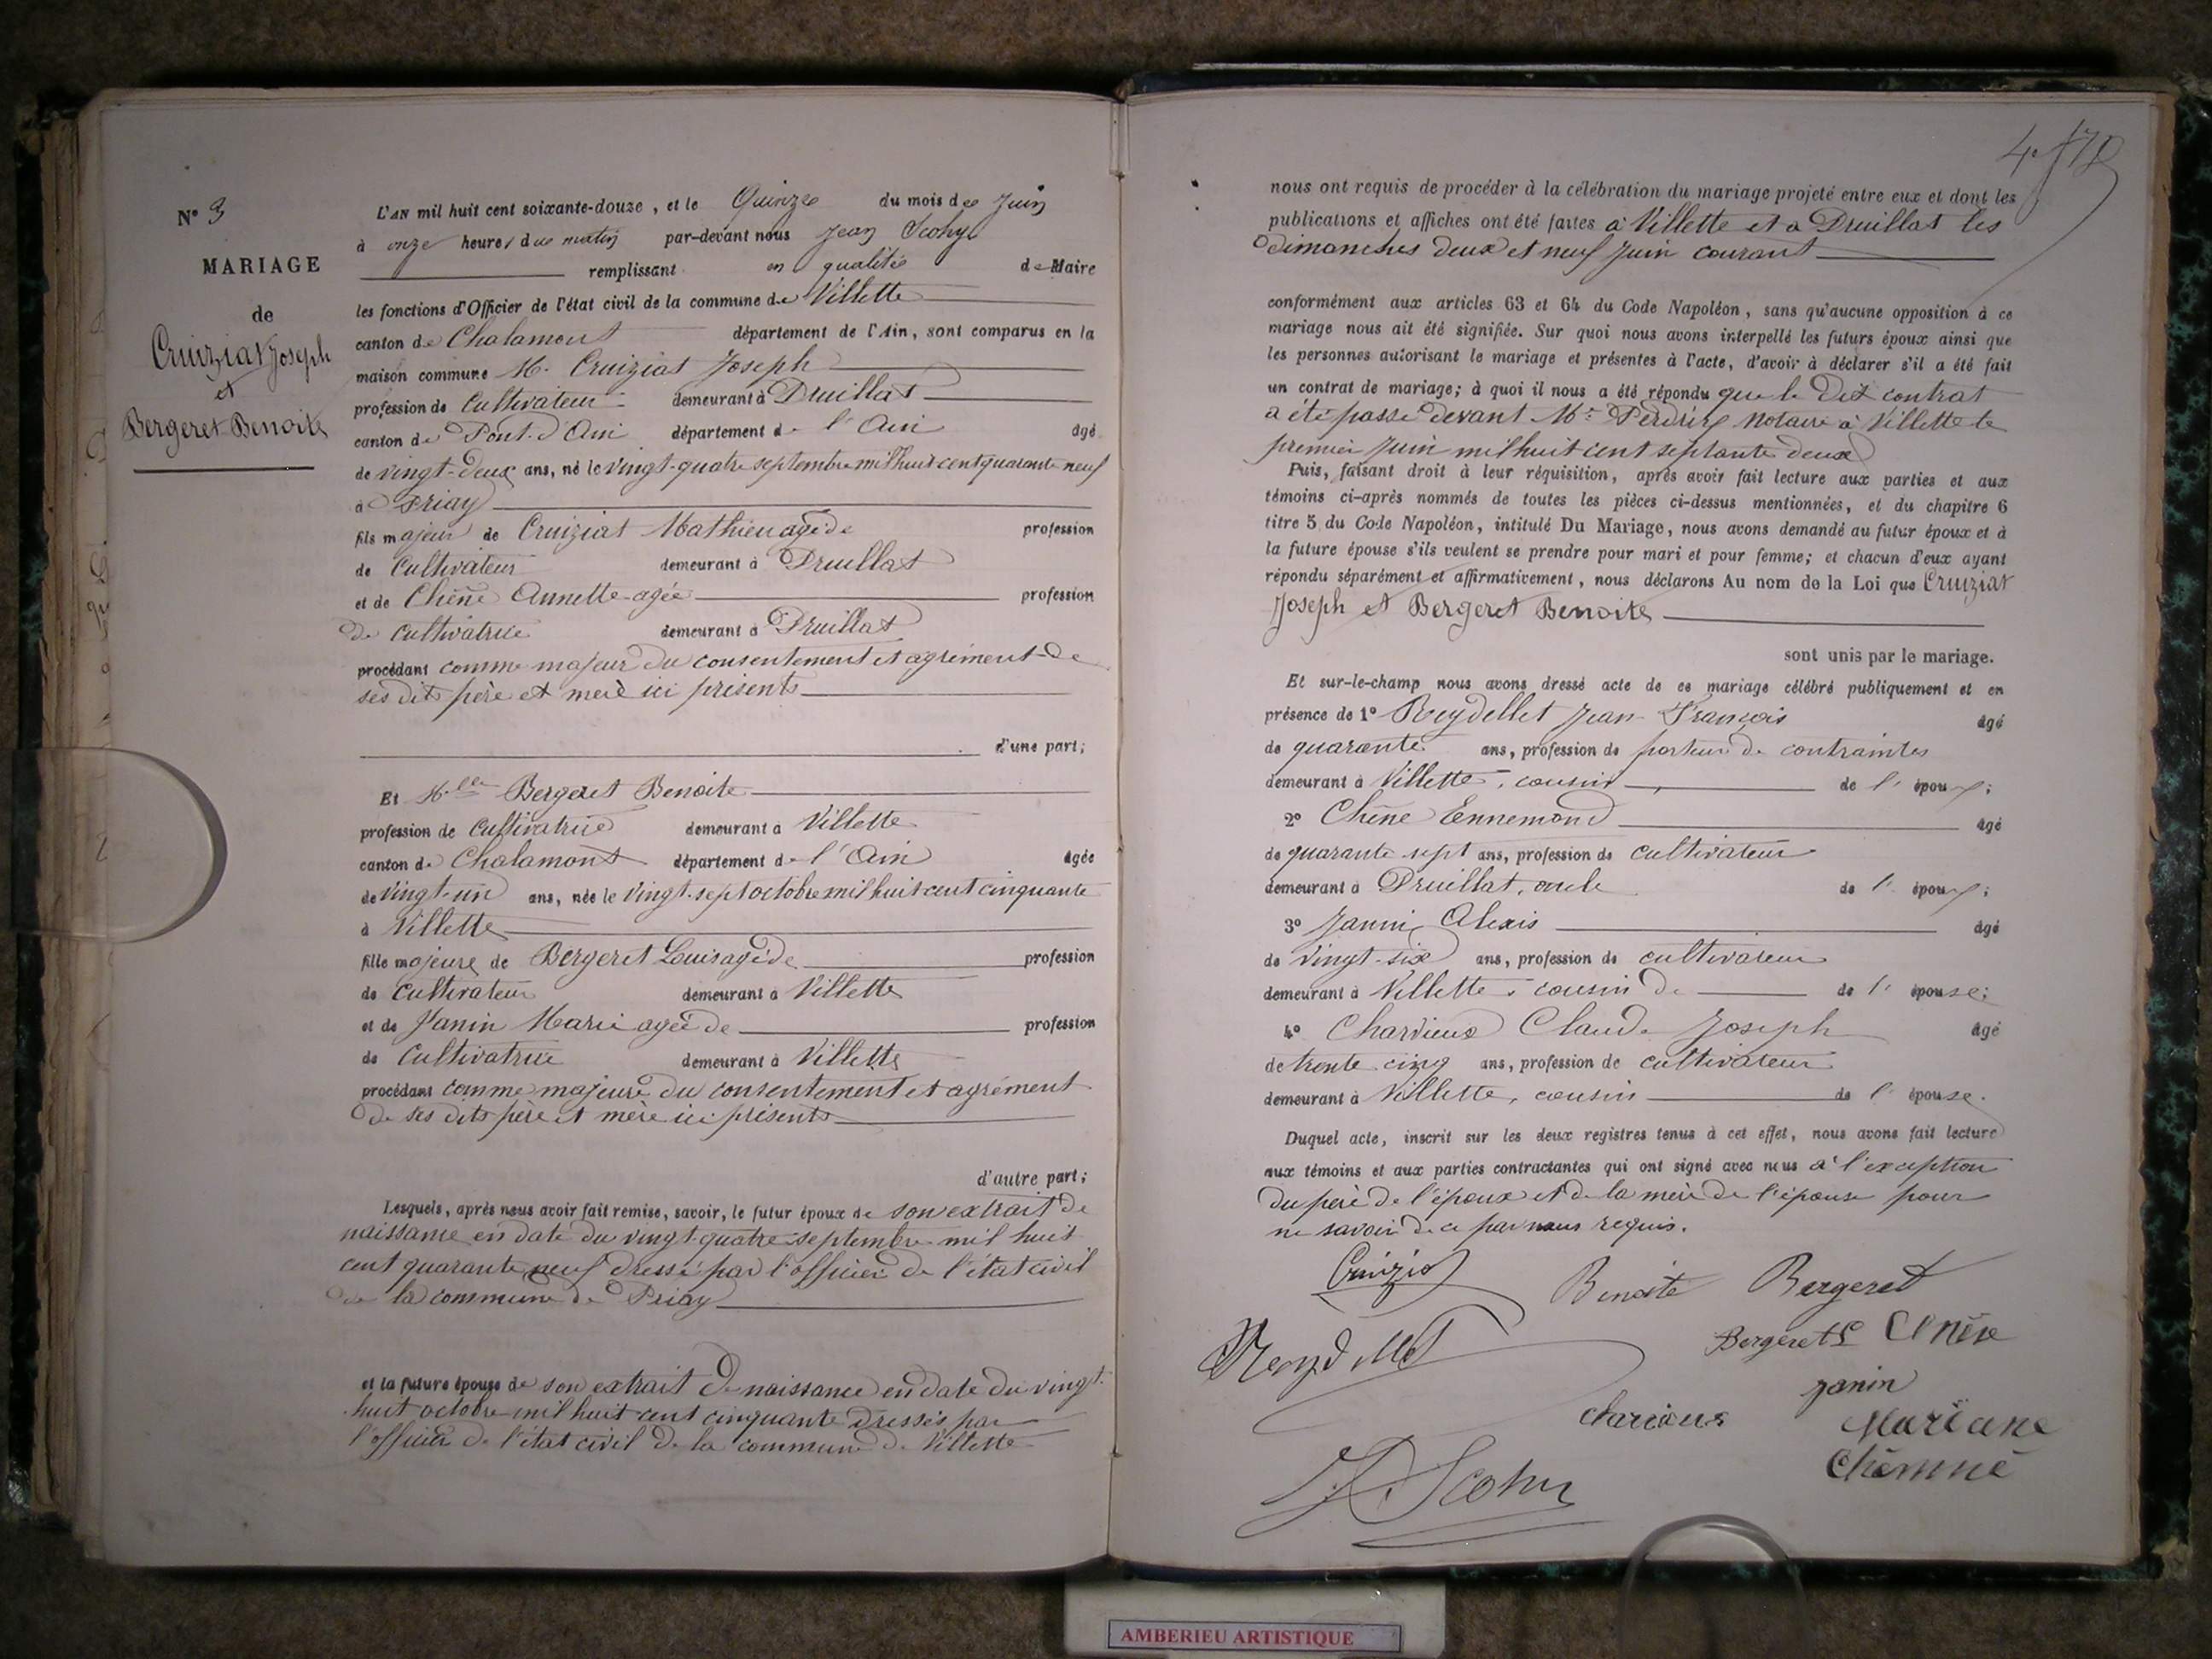 N° 3
MARIAGE
de
Cruiziat Joseph
et
Bergeret Benoite
L'AN mil huit cent soixante-douze, et le Quinze du mois de Juin
à onze heures du matin par-devant nous Jean Scohy
remplissant en qualité de Maire
les fonctions d'Officier de l'état civil de la commune de Villette
canton de Chalamont département de l'Ain, sont comparus en la
maison commune M. Cruiziat Joseph
profession de Cultivateur demeurant à Druillat
canton de Pont-d'Ain département de l'Ain âgé
de vingt-deux ans, né le vingt-quatre septembre mil huit cent quarante neuf
à Priay
fils majeur de Cruiziat Mathieu agé de profession
de Cultivateur demeurant à Druillat
et de Chêne Annette agée profession
de cultivatrice demeurant à Druillat
procédant comme majeur du consentement et agrément de
ses dits père et mère ici présents
d'une part;
Et Mlle Bergeret Benoite
profession de Cultivatrice demeurant à Villette
canton de Chalamont département de l'Ain âgée
de vingt-un ans, née le vingt-sept octobre mil huit cent cinquante
à Villette
fille majeure de Bergeret Louis agé de profession
de Cultivateur demeurant à Villette
et de Janin Marie agée de profession
de Cultivatrice demeurant à Villette
procédant comme majeure du consentement et agrément
de ses dits père et mère ici présents
d'autre part;
Lesquels, après nous avoir fait remise, savoir, le futur époux de son extrait de
naissance en date du vingt-quatre septembre mil huit
cent quarante neuf dressé par l'officier de l'état civil
de la commune de Priay
et la future épouse de son extrait de naissance en date du vingt-
huit octobre mil huit cent cinquante dressés par
l'officier de l'état civil de la commune de Villette
nous ont requis de procéder à la célébration du mariage projeté entre eux et dont les
publications et affiches ont été faites à Villette et à Druillat les
dimanches deux et neuf Juin courant
conformément aux articles 63 et 64 du Code Napoléon, sans qu'aucune opposition à ce
mariage nous ait été signifiée. Sur quoi nous avons interpellé les futurs époux ainsi que
les personnes autorisant le mariage et présentes à l'acte, d'avoir à déclarer s'il a été fait
un contrat de mariage; à quoi il nous a été répondu que le dit contrat
a été passé devant Me Perdrix Notaire à Villette le
premier Juin mil huit cent septante deux
Puis, faisant droit à leur réquisition, après avoir fait lecture aux parties et aux
témoins ci-après nommés de toutes les pièces ci-dessus mentionnées, et du chapitre 6
titre 5 du Code Napoléon, intitulé Du Mariage, nous avons demandé au futur époux et à
la future épouse s'ils veulent se prendre pour mari et pour femme; et chacun d'eux ayant
répondu séparément et affirmativement, nous déclarons Au nom de la Loi que Cruiziat
Joseph et Bergeret Benoite
sont unis par le mariage.
Et sur-le-champ nous avons dressé acte de ce mariage célébré publiquement et en
présence de 1° Reydellet Jean François âgé
de quarante ans, profession de porteur de contraintes
demeurant à Villette, cousin de l'époux;
2° Chêne Ennemond âgé
de quarante sept ans, profession de cultivateur
demeurant à Druillat, oncle de l'époux;
3° Janin Alexis âgé
de vingt-six ans, profession de cultivateur
demeurant à Villette, cousin de de l'épouse;
4° Chardieux Claude Joseph âgé
de trente cinq ans, profession de cultivateur
demeurant à Villette, cousin de l'épouse.
Duquel acte, inscrit sur les deux registres tenus à cet effet, nous avons fait lecture
aux témoins et aux parties contractantes qui ont signé avec nous à l'exception
du père de l'époux et de la mère de l'épouse pour
ne savoir de ce par nous requis.
Benoite Bergeret
Bergeret L Chêne
Janin
Mariane
J. Scohy
AMBERIEU ARTISTIQUE